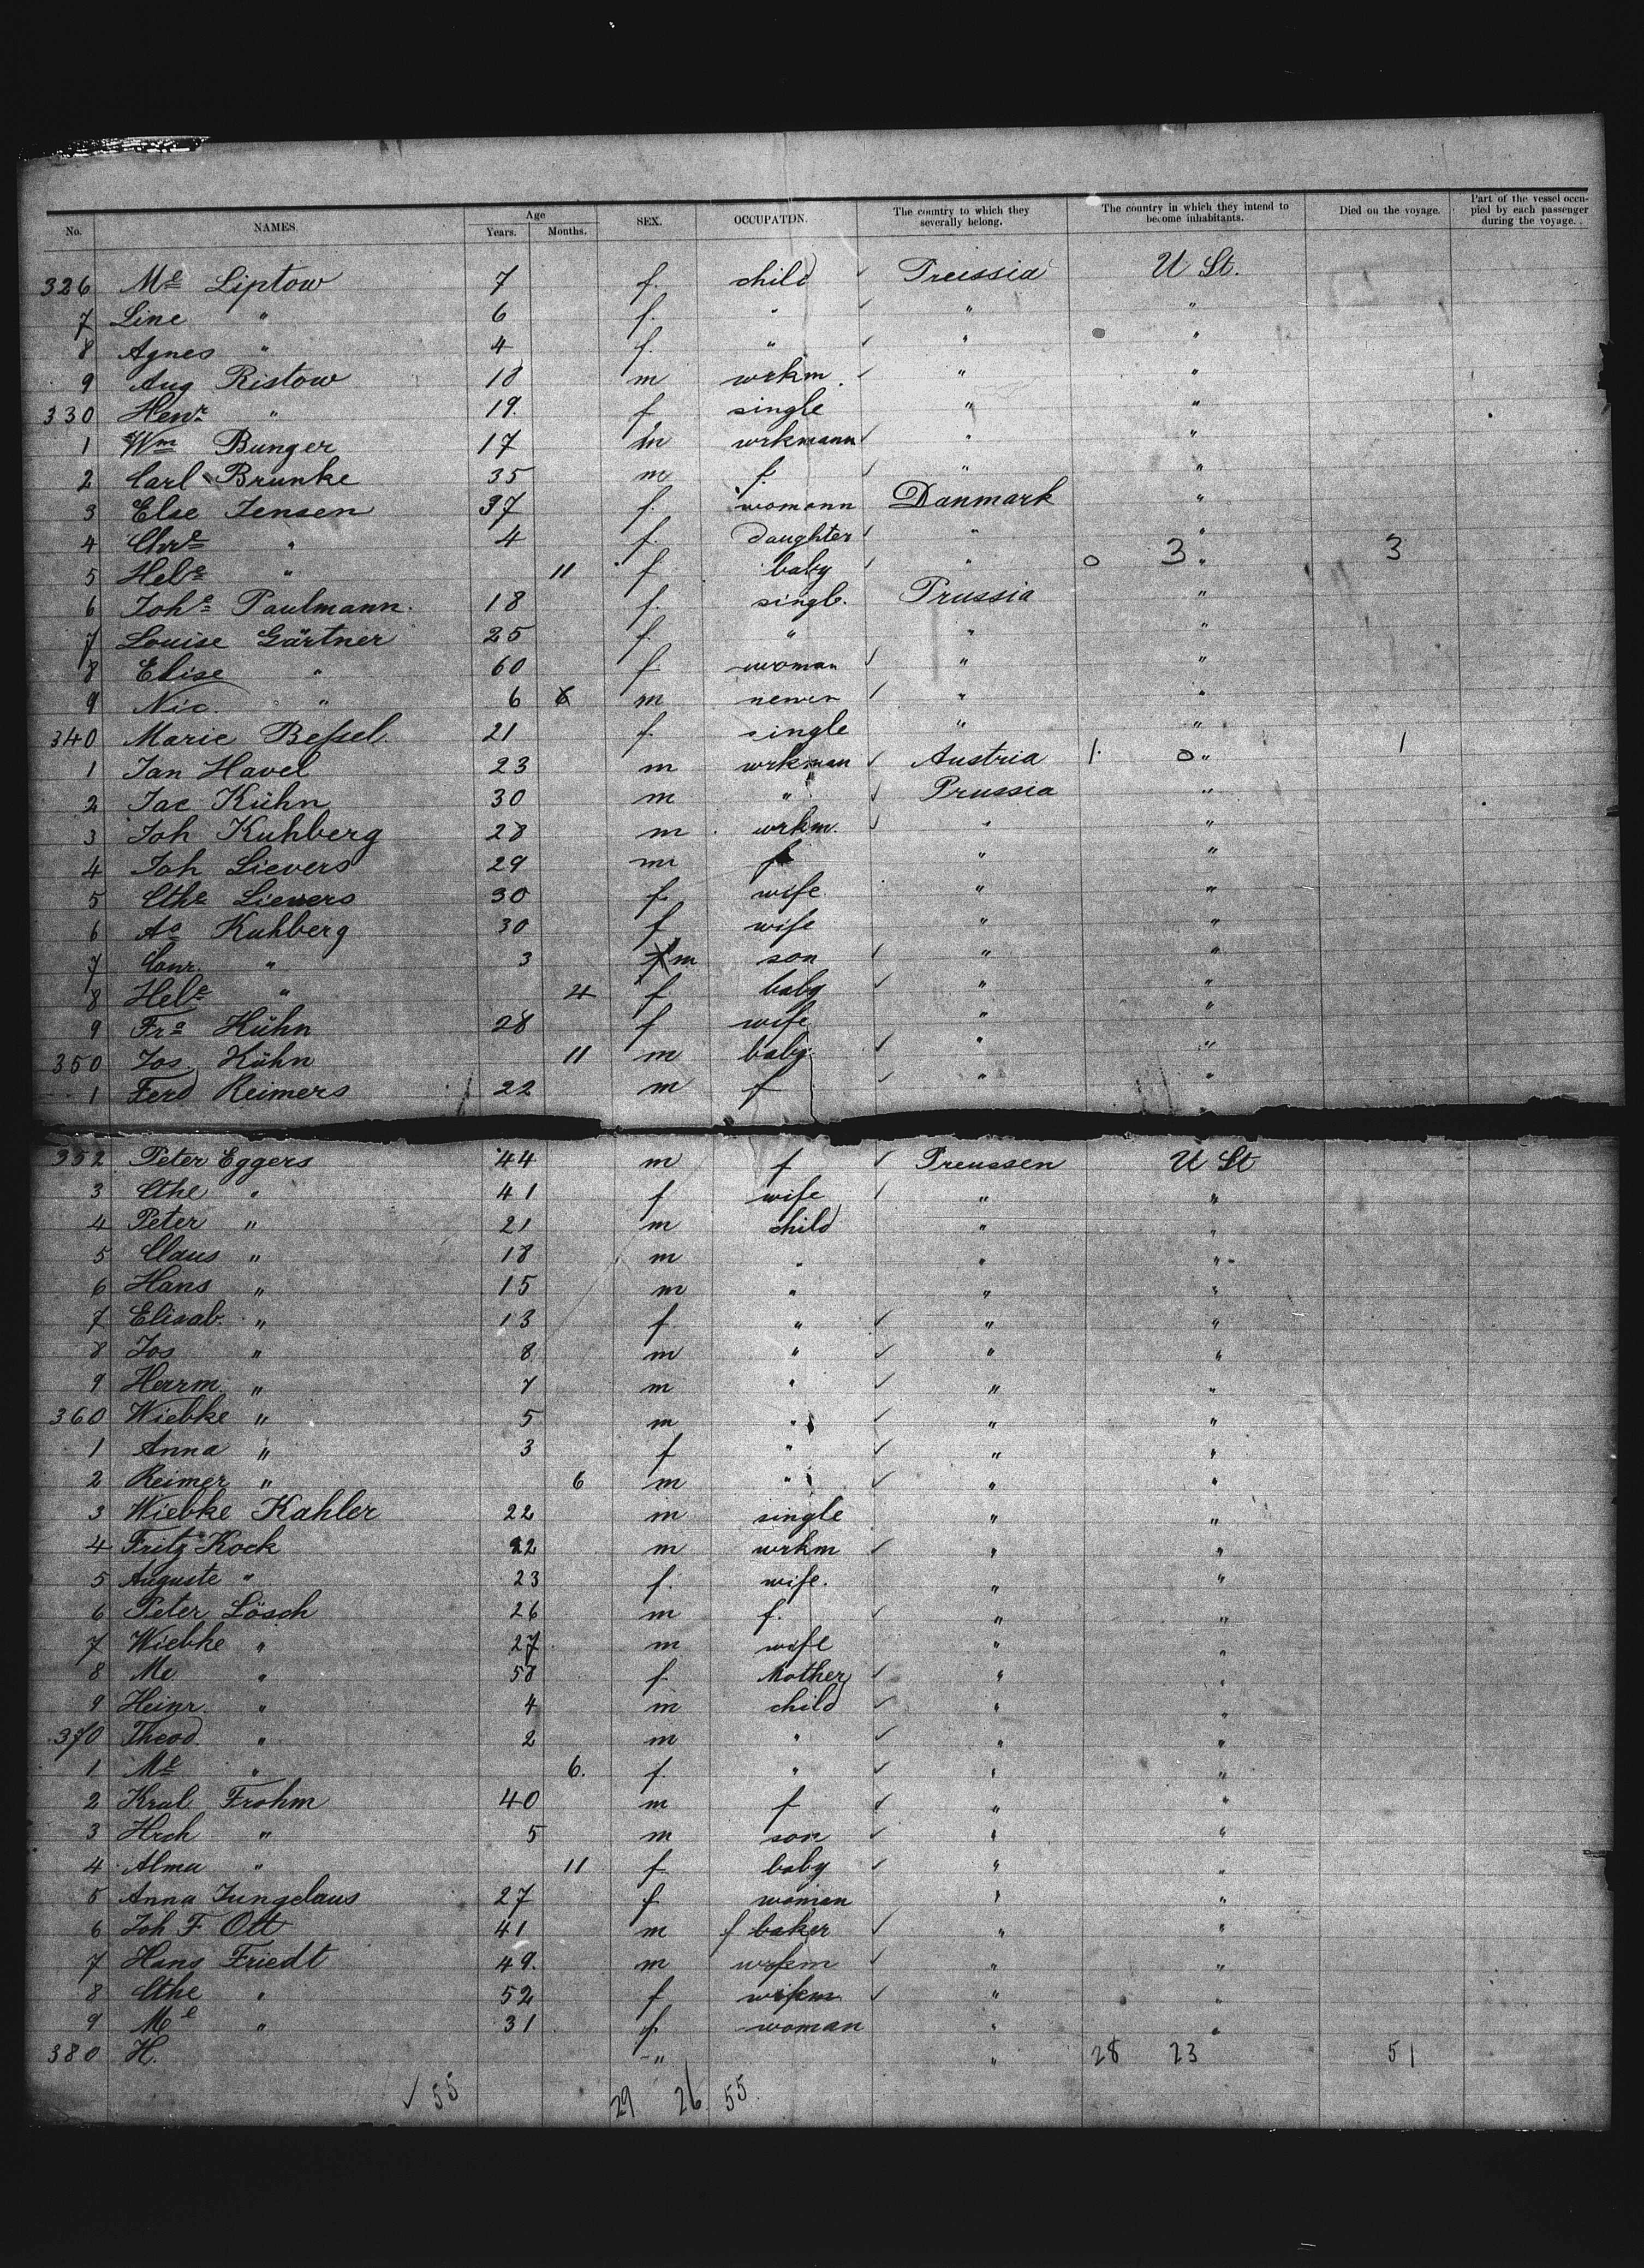 No. NAMES. Age Years. Months. SEX. OCCUPATDN. The country to which they severally belong. The country in which they intend to become inhabitants. Died on the voyage. Part of the vessel occupied by each passenger during the voyage.
326 Me Liptow 7 f. child ✓ Preussia U St.
7 Line " 6 f. " ✓ " "
8 Agnes " 4 f. " ✓ " "
9 Aug Ristow 18 m wrkm. ✓ " "
330 Henr " 19. f single " "
1 Wm Bunger 17 m wrkmann ✓ " "
2 Carl Brunke 35 m f. ✓ " "
3 Else Jensen 37 f. womann Danmark "
4 Chre " 4 f. daughter ✓ " "
5 Hele " 11 f baby ✓ " o 3 " 3
6 Johe Paulmann. 18 f. single. Prussia "
7 Louise Gärtner 25 f. " " "
8 Elise " 60 f woman ✓ " "
9 Nic. " 6 6 m ✓ " "
340 Marie Beßel. 21 f. single " "
1 Jan Havel 23 m wrkman ✓ Austria 1. o " 1
2 Jac Kühn 30 m " ✓ Prussia "
3 Joh Kuhberg 28 m wrkm. ✓ " "
4 Joh Lievers 29 m f " "
5 Cthe Lievers 30 f. wife " "
6 Aa Kuhberg 30 f wife " "
7 Conr. " 3 m son ✓ " "
8 Hele " 4 f baby ✓ " "
9 Fra Kühn 28 f wife " "
350 Jos Kühn 11 m baby ✓ " "
1 Ferd Reimers 22 m f ✓ " "
352 Peter Eggers 44 m f ✓ Preussen U St
3 Cthe " 41 f wife ✓ " "
4 Peter " 21 m child " "
5 Claus " 18 m " " "
6 Hans " 15 m " " "
7 Elisab. " 13 f " ✓ " "
8 Jos " 8 m " ✓ " "
9 Herrm. " 7 m " ✓ " "
360 Wiebke " 5 m " ✓ " "
1 Anna " 3 f " ✓ " "
2 Reimer " 6 m " ✓ " "
3 Wiebke Kahler 22 m single " "
4 Fritz Kock 22 m wrkm ✓ " "
5 Auguste " 23 f. wife. " "
6 Peter Lösch 26 m f. ✓ " "
7 Wiebke " 27 m wife " "
8 Me " 58 f. Mother ✓ " "
9 Heinr. " 4 m child ✓ " "
370 Theod. " 2 m " ✓ " "
1 Me " 6. f. " ✓ " "
2 Kral Frohm 40 m f ✓ " "
3 Hrch " 5 m son ✓ " "
4 Alma " 11 f baby ✓ " "
5 Anna Jungclaus 27 f woman " "
6 Joh F Ott 41 m f baker ✓ " "
7 Hans Friedt 49. m wrkm ✓ " "
8 Cthe " 52 f ✓ " "
9 Me " 31 f. woman " "
380 H. " " 28 23 51
✓ 55 29 26 55